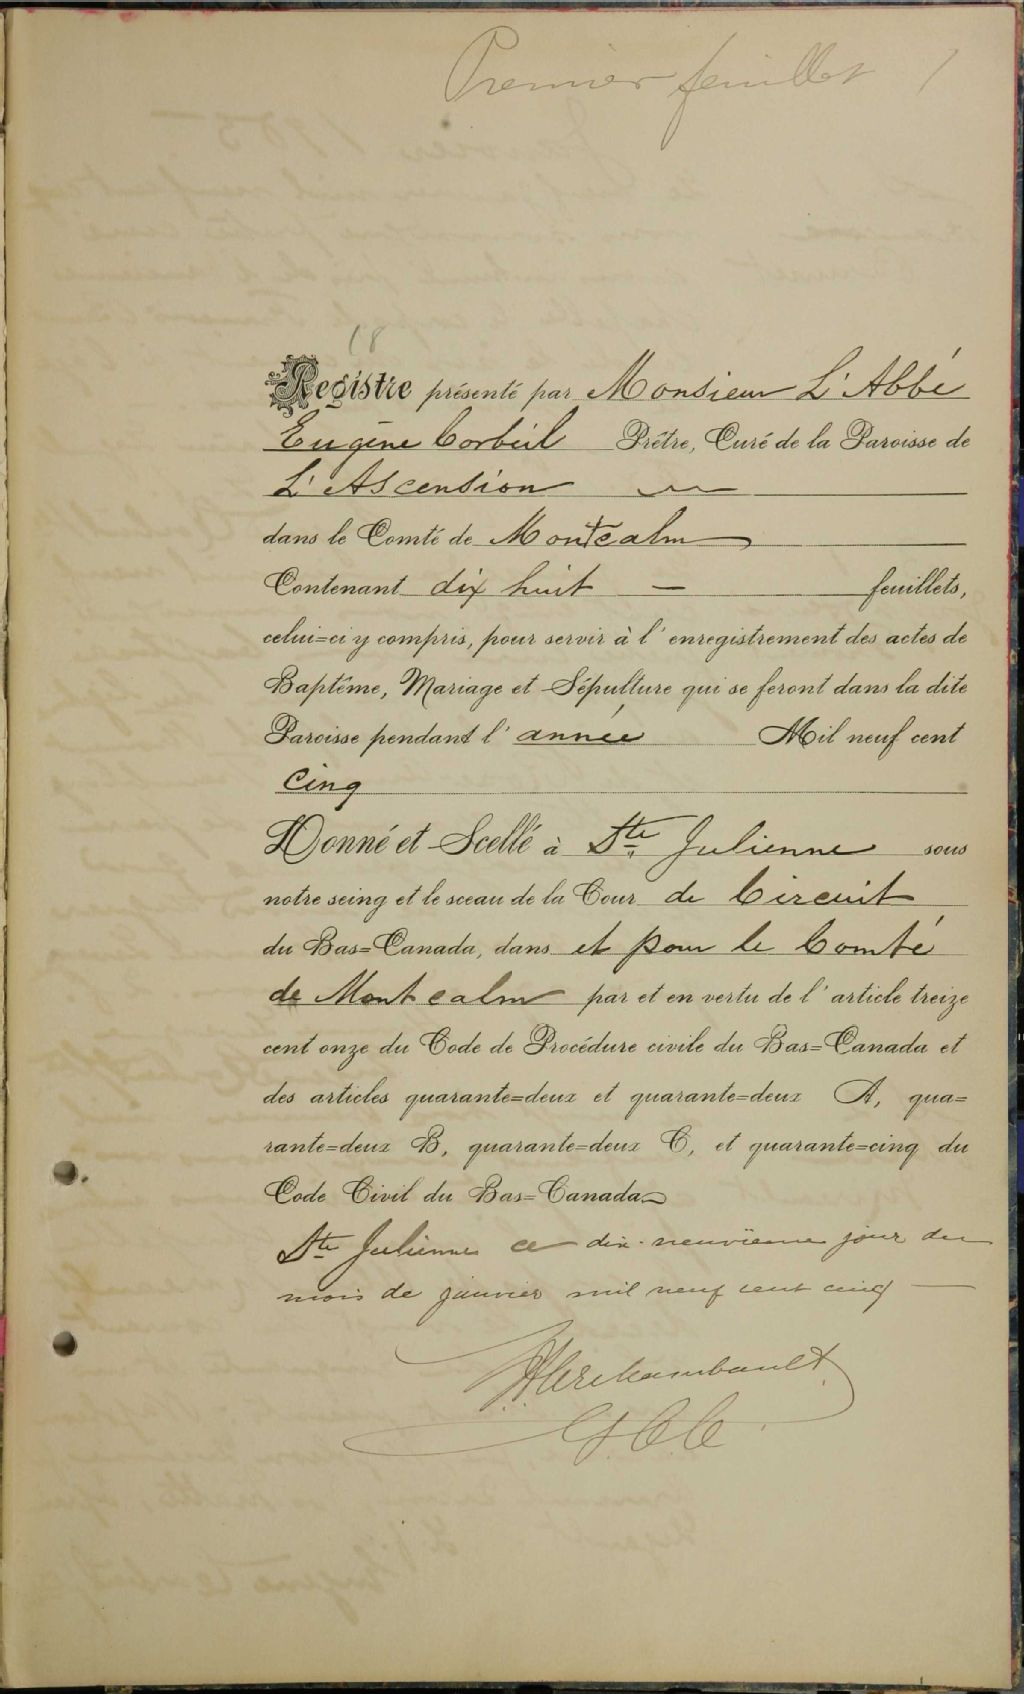 Premier feuillet 1
18
Registre présenté par Monsieur L'Abbé
Eugène Corbeil Prêtre, Curé de la Paroisse de
L'Ascension
dans le Comté de Montcalm
Contenant dix huit — feuillets,
celui=ci y compris, pour servir à l'enregistrement des actes de
Baptême, Mariage et Sépulture qui se feront dans la dite
Paroisse pendant l'année Mil neuf cent
cinq
Donné et Scellé à Ste Julienne sous
notre seing et le sceau de la Cour de Circuit
du Bas=Canada, dans et pour le Comté
de Montcalm par et en vertu de l'article treize
cent onze du Code de Procédure civile du Bas=Canada et
des articles quarante=deux et quarante=deux A, qua=
rante=deux B, quarante=deux C, et quarante=cinq du
Code Civil du Bas=Canada
Ste Julienne ce dix-neuvième jour du
mois de janvier mil neuf cent cinq —
Archambault
G C C